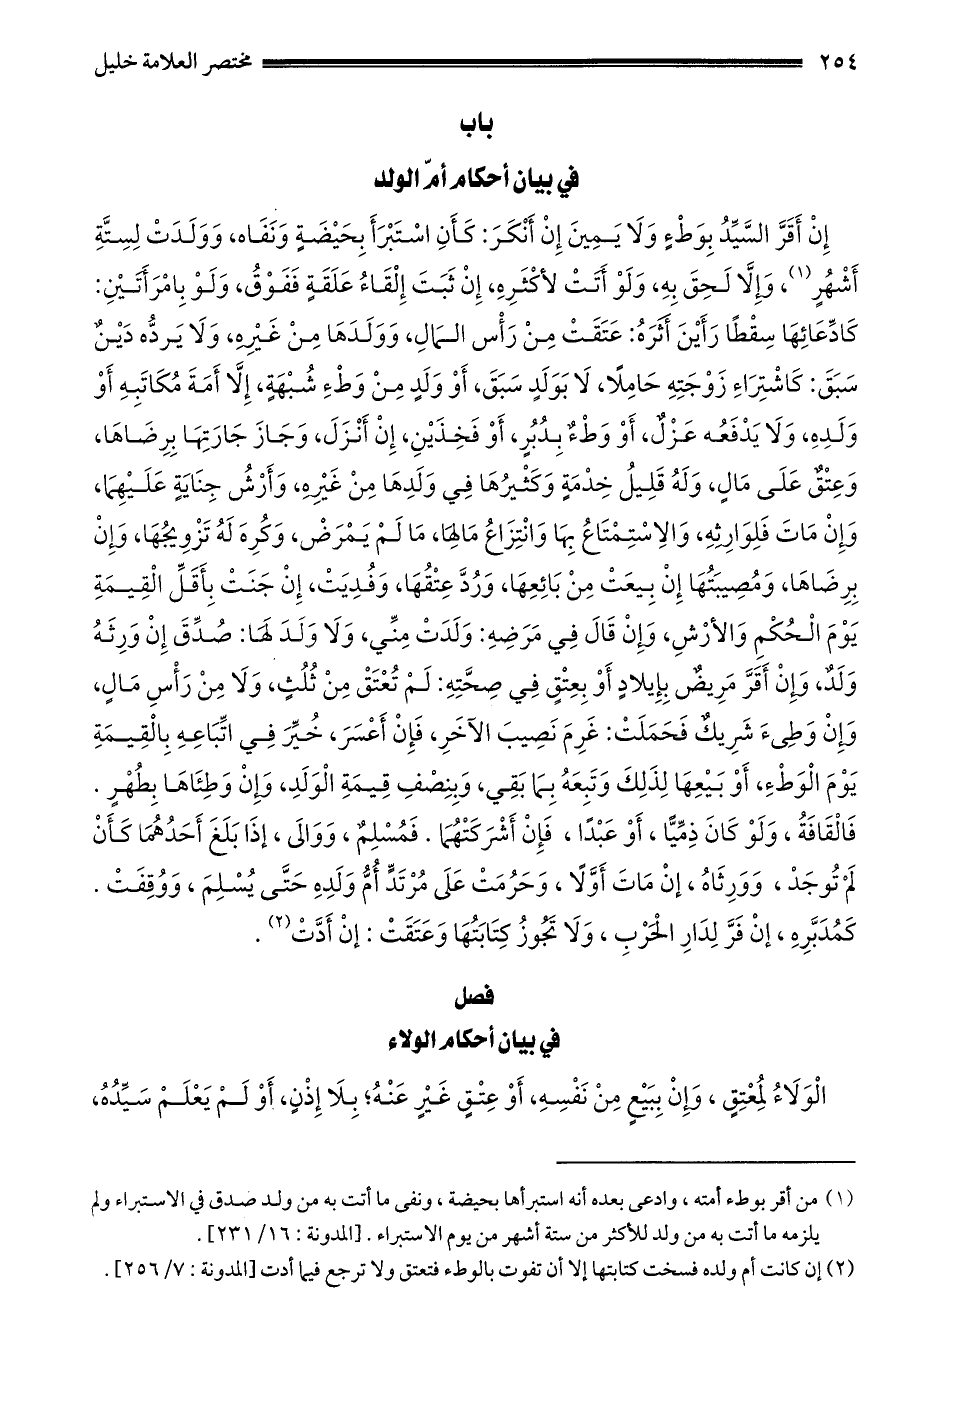 ٢٥٤ مختصر العلامة خليل
باب
في بيان أحكام أمّ الولد
إِنْ أَقَرَّ السَّيِّدُ بِوَطْءٍ وَلَا يَمِينَ إِنْ أَنْكَرَ: كَأَنِ اسْتَبْرَأَ بِحَيْضَةٍ وَنَفَاه، وَوَلَدَتْ لِسِتَّةِ
أَشْهُرٍ (١)، وَإِلَّا لَحِقَ بِهِ، وَلَوْ أَتَتْ لأكْثَرِهِ، إِنْ ثَبَتَ إِلْقَاءُ عَلَقَةٍ فَفَوْقُ، وَلَوْ بِامْرَأَتَيْنِ:
كَادِّعَائِهَا سِقْطًا رَأَيْنَ أَثَرَهُ: عَتَقَتْ مِنْ رَأْس الـمَالِ، وَوَلَدهَا مِنْ غَيْرِهِ، وَلَا يَردُّه دَيْنٌ
سَبَقَ: كَاشْتِرَاءِ زَوْجَتِهِ حَامِلًا، لَا بَوَلَدٍ سَبَق، أَوْ وَلَدٍ مِنْ وَطْءِ شُبْهَةٍ، إِلَّا أَمَةَ مُكَاتَبِهِ أَوْ
وَلَدِهِ، وَلَا يَدْفَعُه عَزْلٌ، أَوْ وَطْءٌ بِدُبُرٍ، أَوْ فَخِذَيْنِ، إِنْ أَنْزَلَ، وَجَازَ جَارَتِهَا بِرِضَاهَا،
وَعِتْقٌ عَلَى مَالٍ، وَلَهُ قَلِيلُ خِدْمَةٍ وَكَثْيرُهَا فِي وَلَدِهَا مِنْ غَيْرِهِ، وَأَرْشُ جِنَايَةٍ عَلَيْهِمَا،
وَإِنْ مَاتَ فَلِوَارِثِهِ، وَالِاسْتِمْتَاعُ بِهَا وَانْتِزَاعُ مَالِهَا، مَا لَمْ يَمْرَضْ، وَكُرِهَ لَهُ تَزْوِيجُهَا، وَإِنْ
بِرِضَاهَا، وَمُصِيبَتُهَا إِنْ بِيعَتْ مِنْ بَائِعِهَا، وَرُدَّ عِتْقُهَا، وَفُدِيَتْ، إِنْ جَنَتْ بِأَقَلِّ الْقِيمَةِ
يَوْمَ الْحُكْمِ وَالأرْشِ، وَإِنْ قَالَ فِي مَرَضِهِ: وَلَدَتْ مِنِّي، وَلَا وَلَدَ لَهَا: صُدِّقَ إِنْ وَرِثَهُ
وَلَدٌ، وَإِنْ أَقَرَّ مَرِيضٌ بِإِيلادٍ أَوْ بِعِتْقٍ فِي صِحَّتِهِ: لَمْ تُعْتَقْ مِنْ ثُلُثٍ، وَلَا مِنْ رَأْسِ مَالٍ،
وَإِنْ وَطِيءَ شَرِيكٌ فَحَمَلَتْ: غَرِمَ نَصِيبَ الآخَرِ، فَإِنْ أَعْسَرَ، خُيِّرَ فِي اتِّبَاعِهِ بِالْقِيمَةِ
يَوْمَ الْوَطْءِ، أَوْ بَيْعِهَا لِذَلِكَ وَتَبِعَهُ بِمَا بَقِي، وَبِنِصْفِ قِيمَةِ الْوَلَدِ، وَإِنْ وَطِئَاهَا بِطُهْرٍ .
فَالْقَافَةُ ، وَلَوْ كَانَ ذِمِّيًّا ، أَوْ عَبْدًا ، فَإِنْ أَشْرَكَتْهُمَا . فَمُسْلِمٌ ، وَوَالَى ، إِذَا بَلَغَ أَحَدُهُمَا كَأَنْ
لَمْ تُوجَدْ ، وَوَرِثَاهُ ، إِنْ مَاتَ أَوَّلًا ، وَحَرُمَتْ عَلَى مُرْتَدٍّ أُمُّ وَلَدِهِ حَتَّى يُسْلِمَ ، وَوُقِفَتْ .
كَمُدَبَّرِهِ ، إِنْ فَرَّ لِدَارِ الْحَرْبِ ، وَلَا تَجُوزُ كِتَابَتُهَا وَعَتَقَتْ : إِنْ أَدَّتْ(٢) .
فصل
في بيان أحكام الولاء
الْوَلَاءُ لِمُعْتِقٍ ، وَإِنْ بِبَيْعٍ مِنْ نَفْسِهِ، أَوْ عِتْقِ غَيْرٍ عَنْهُ؛ بِلَا إِذْنٍ، أَوْ لَمْ يَعْلَمْ سَيِّدُهُ،
(١) من أقر بوطء أمته ، وادعى بعده أنه استبرأها بحيضة ، ونفى ما أتت به من ولد صدق في الاستبراء ولم
يلزمه ما أتت به من ولد للأكثر من ستة أشهر من يوم الاستبراء . [المدونة : ١٦/ ٢٣١] .
(٢) إن كانت أم ولده فسخت كتابتها إلا أن تفوت بالوطء فتعتق ولا ترجع فيما أدت [المدونة : ٧/ ٢٥٦] .